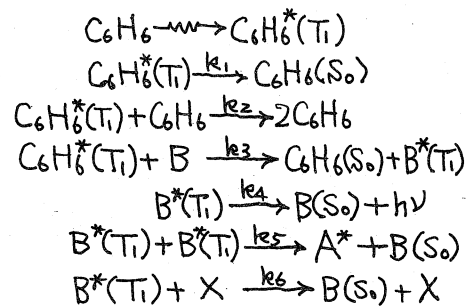 C₆H₆ ⟿ C₆H₆*(T₁)
C₆H₆*(T₁) —k₁→ C₆H₆(S₀)
C₆H₆*(T₁) + C₆H₆ —k₂→ 2C₆H₆
C₆H₆*(T₁) + B —k₃→ C₆H₆(S₀) + B*(T₁)
B*(T₁) —k₄→ B(S₀) + hν
B*(T₁) + B*(T₁) —k₅→ A* + B(S₀)
B*(T₁) + X —k₆→ B(S₀) + X